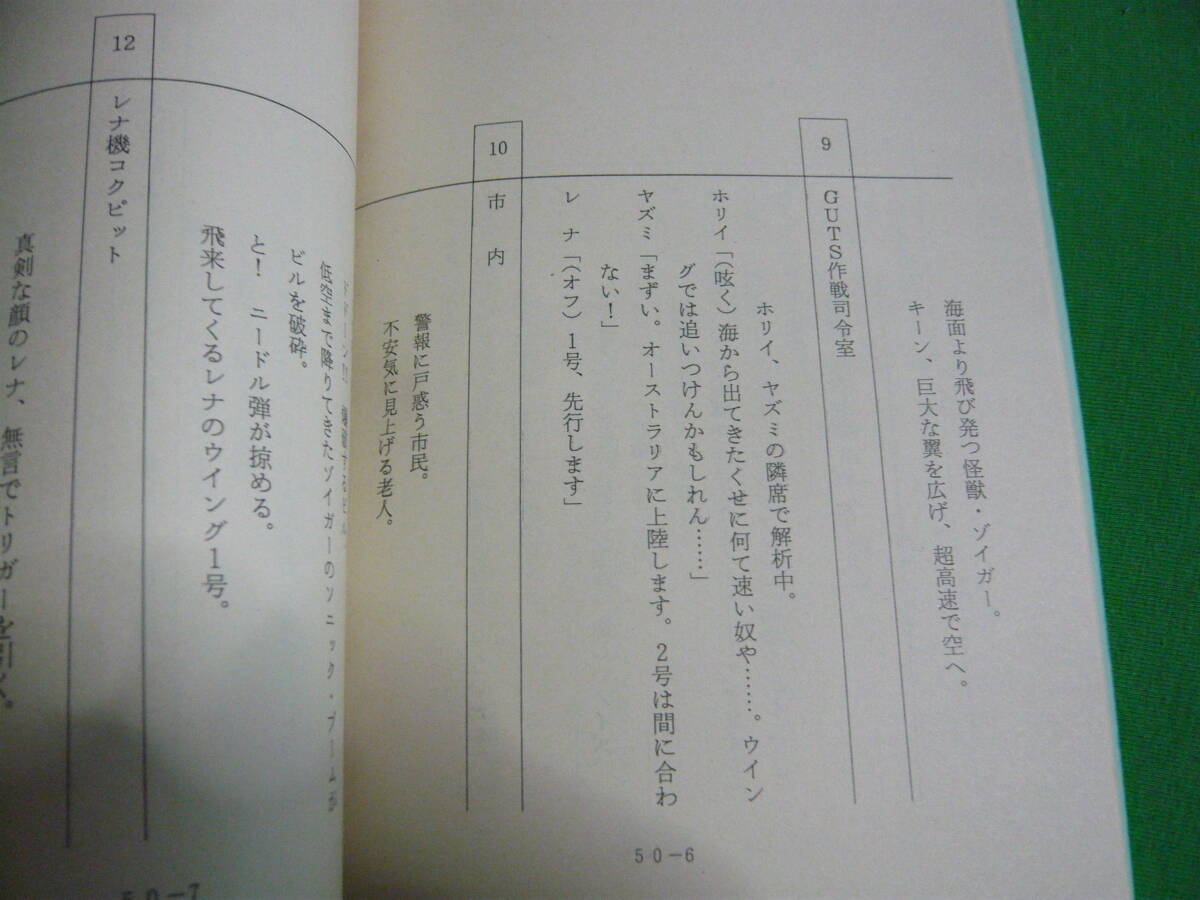 海面より飛び発つ怪獣・ゾイガー。
キーン、巨大な翼を広げ、超高速で空へ。
9 GUTS作戦司令室
ホリイ、ヤズミの隣席で解析中。
ホリイ「(呟く)海から出てきたくせに何て速い奴や……。ウイン
グでは追いつけんかもしれん……」
ヤズミ「まずい。オーストラリアに上陸します。2号は間に合わ
ない!」
レ ナ「(オフ)1号、先行します」
10 市 内
警報に戸惑う市民。
不安気に見上げる老人。
50-6
低空まで降りてきたゾイガーのソニック・ブームが
ビルを破砕。
と! ニードル弾が掠める。
飛来してくるレナのウイング1号。
12 レナ機コクピット
真剣な顔のレナ、無言でトリガーを引く。
50-7